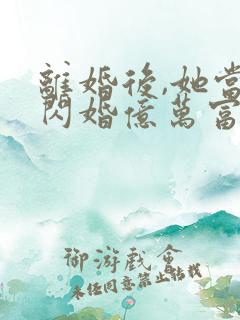 離婚後,她當
閃婚億萬富
御游戲會
未经同意禁止转载